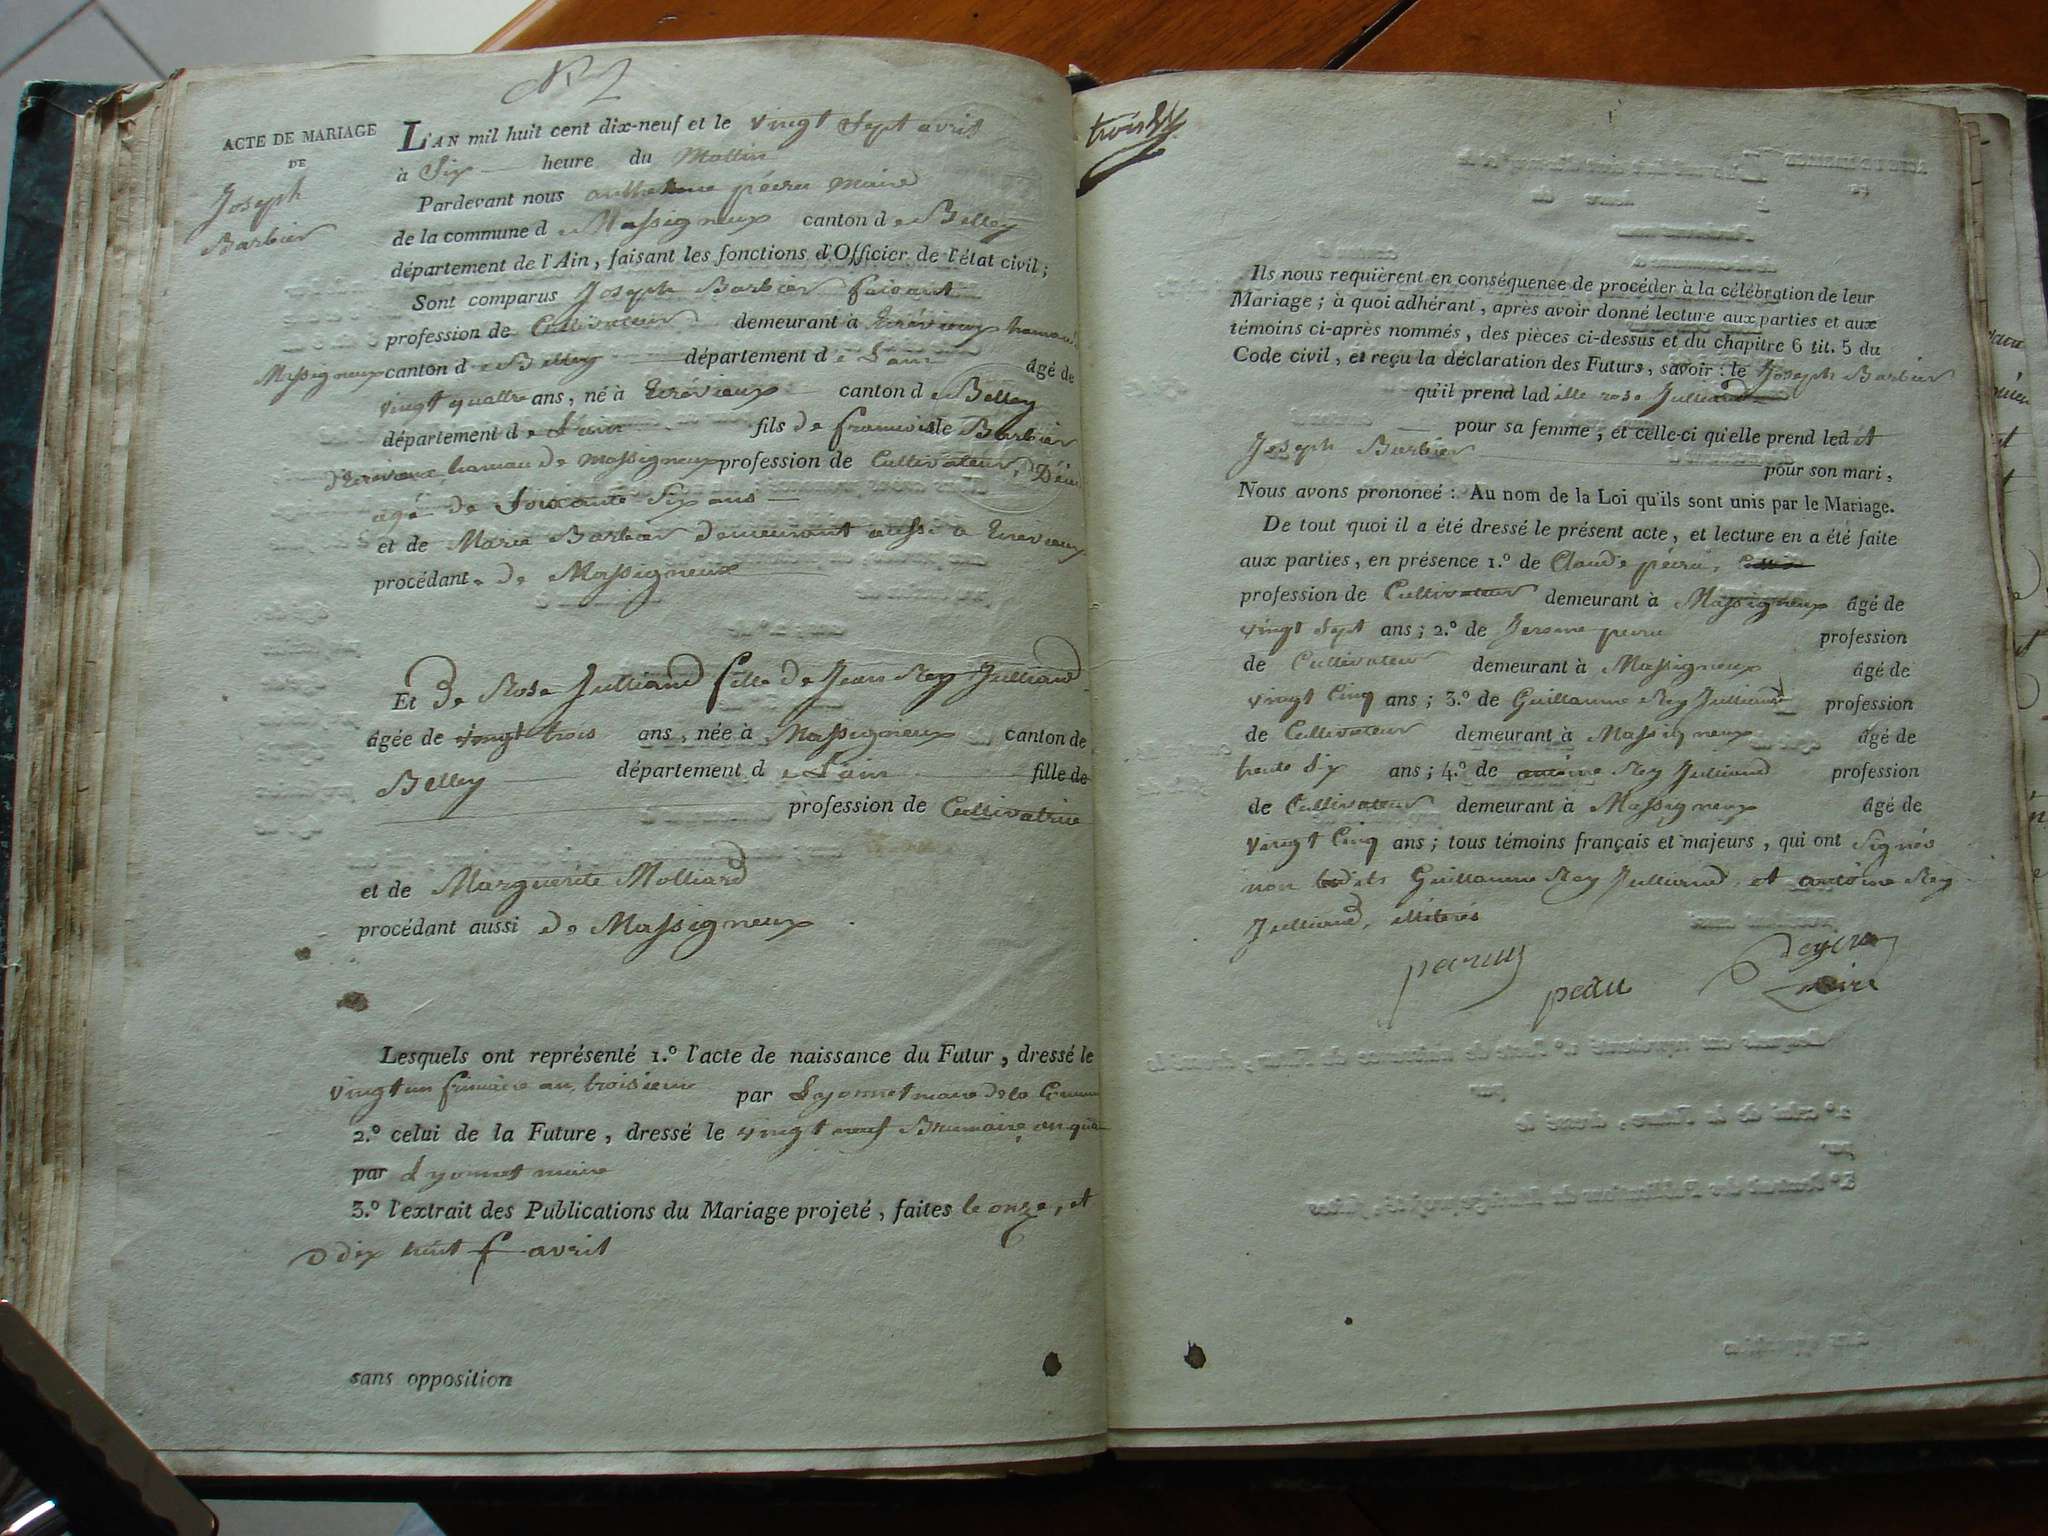 N° 2
ACTE DE MARIAGE
DE
Joseph
Barbier
L'AN mil huit cent dix-neuf et le vingt Sept avril
à Six heure du Mattin
Pardevant nous anthelme pécru maire
de la commune de Massigneux canton de Belley
département de l'Ain, faisant les fonctions d'Officier de l'état civil;
Sont comparus Joseph Barbier faisant
profession de Cultivateur demeurant à
Massigneux canton de Belley département de Lain âgé de
vingt quattre ans, né à canton de Belley
département de Lain fils de francoisle Barbier
hameau de Massigneux profession de Cultivateur,
agé de Soixante Six ans
et de Marie Barbier demeurant aussi a
procédant de Massigneux
Et de Rose Julliand fille de Jean Rey Julliand
âgée de vingt trois ans, née à Massigneux canton de
Belley département de Lain fille de
profession de Cultivatrice
et de Marguerite Molliard
procédant aussi de Massigneux
Lesquels ont représenté 1.º l'acte de naissance du Futur, dressé le
vingt un frimaire an troisieme par Lyonnet maire de la
2.º celui de la Future, dressé le vingt neuf Brumaire an
par Lyonnet maire
3.º l'extrait des Publications du Mariage projeté, faites le onze, et
dix huit avril
sans opposition
trois
Ils nous requièrent en conséquence de procéder à la célébration de leur
Mariage; à quoi adhérant, après avoir donné lecture aux parties et aux
témoins ci-après nommés, des pièces ci-dessus et du chapitre 6 tit. 5 du
Code civil, et reçu la déclaration des Futurs, savoir: le Joseph Barbier
qu'il prend ladille rose Julliand
pour sa femme, et celle-ci qu'elle prend ledit
Joseph Barbier pour son mari,
Nous avons prononcé: Au nom de la Loi qu'ils sont unis par le Mariage.
De tout quoi il a été dressé le présent acte, et lecture en a été faite
aux parties, en présence 1.º de Claude pécru,
profession de Cultivateur demeurant à Massigneux âgé de
vingt Sept ans; 2.º de Jerome pecru profession
de Cultivateur demeurant à Massigneux âgé de
vingt Cinq ans; 3.º de Guillaume Rey Julliand profession
de Cultivateur demeurant à Massigneux âgé de
trente Six ans; 4.º de antoine Rey Julliand profession
de Cultivateur demeurant à Massigneux âgé de
vingt Cinq ans; tous témoins français et majeurs, qui ont Signés
non lesdits Guillaume Rey Julliand et antoine Rey
Julliand, illiterés
pecru
pecru
maire